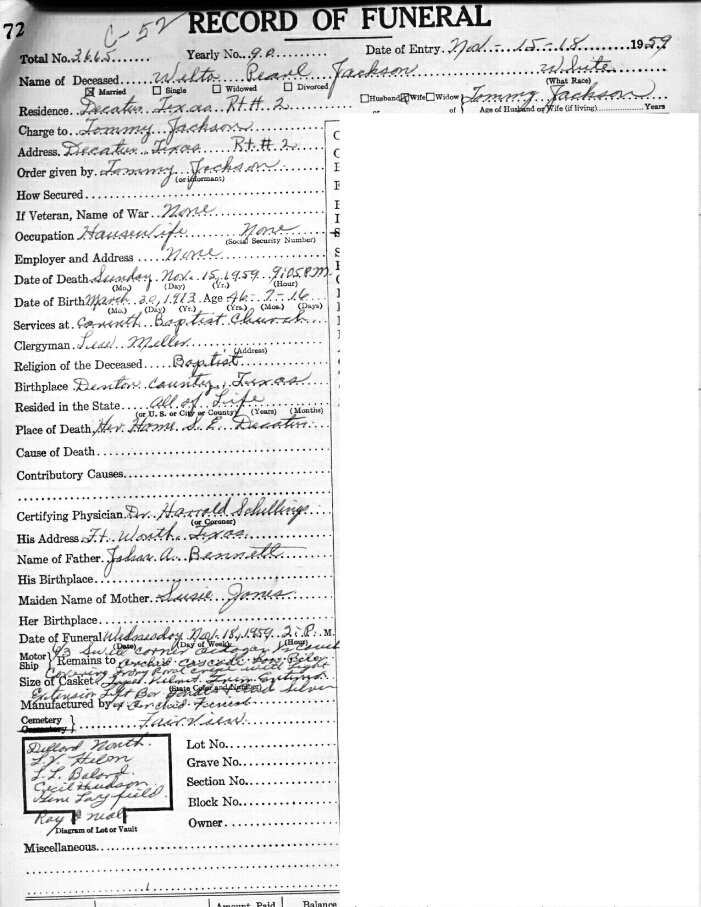 72
C-52
RECORD OF FUNERAL
Total No. 3665 Yearly No. 90 Date of Entry Nov. - 15-18 1959
Name of Deceased Wilta Pearl Jackson White
Married Single Widowed Divorced (What Race)
Residence Decatur Texas Rt # 2 Husband Wife Widow or of Tommy Jackson
Age of Husband or Wife (if living) Years
Charge to Tommy Jackson
Address Decatur Texas Rt # 2
Order given by Tommy Jackson
(or informant)
How Secured
If Veteran, Name of War None
Occupation Housewife None
(Social Security Number)
Employer and Address None
Date of Death Sunday Nov. 15, 1959 9:05 P.M
(Mo.) (Day) (Yr.) (Hour)
Date of Birth March 30, 1913 Age 46 - 7 - 16
(Mo.) (Day) (Yr.) (Yrs.) (Mos.) (Days)
Services at Corinth Baptist Church
Clergyman Miller
(Address)
Religion of the Deceased Baptist
Birthplace Denton County, Texas
Resided in the State All of Life
(or U. S. or City or County) (Years) (Months)
Place of Death Her Home S. E. Decatur
Cause of Death
Contributory Causes
Certifying Physician Dr. Harrald Schillings
(or Coroner)
His Address Ft. Worth, Texas
Name of Father John A. Bennett
His Birthplace
Maiden Name of Mother Susie Jones
Her Birthplace
Date of Funeral Wednesday Nov. 18, 1959 2: P. M.
(Date) (Day of Week) (Hour)
Motor
Ship Remains to Orchid Cascade
Size of Casket
(State Color and Number)
Extension Silver
Manufactured by Orchid
Cemetery
Crematory Fairview
Dillard North Lot No.
L.V. Grave No.
L. L. Balard Section No.
Cecil Hudson Block No.
Gene Layfield
Ray Neal Owner
Diagram of Lot or Vault
Miscellaneous
Amount Paid Balance